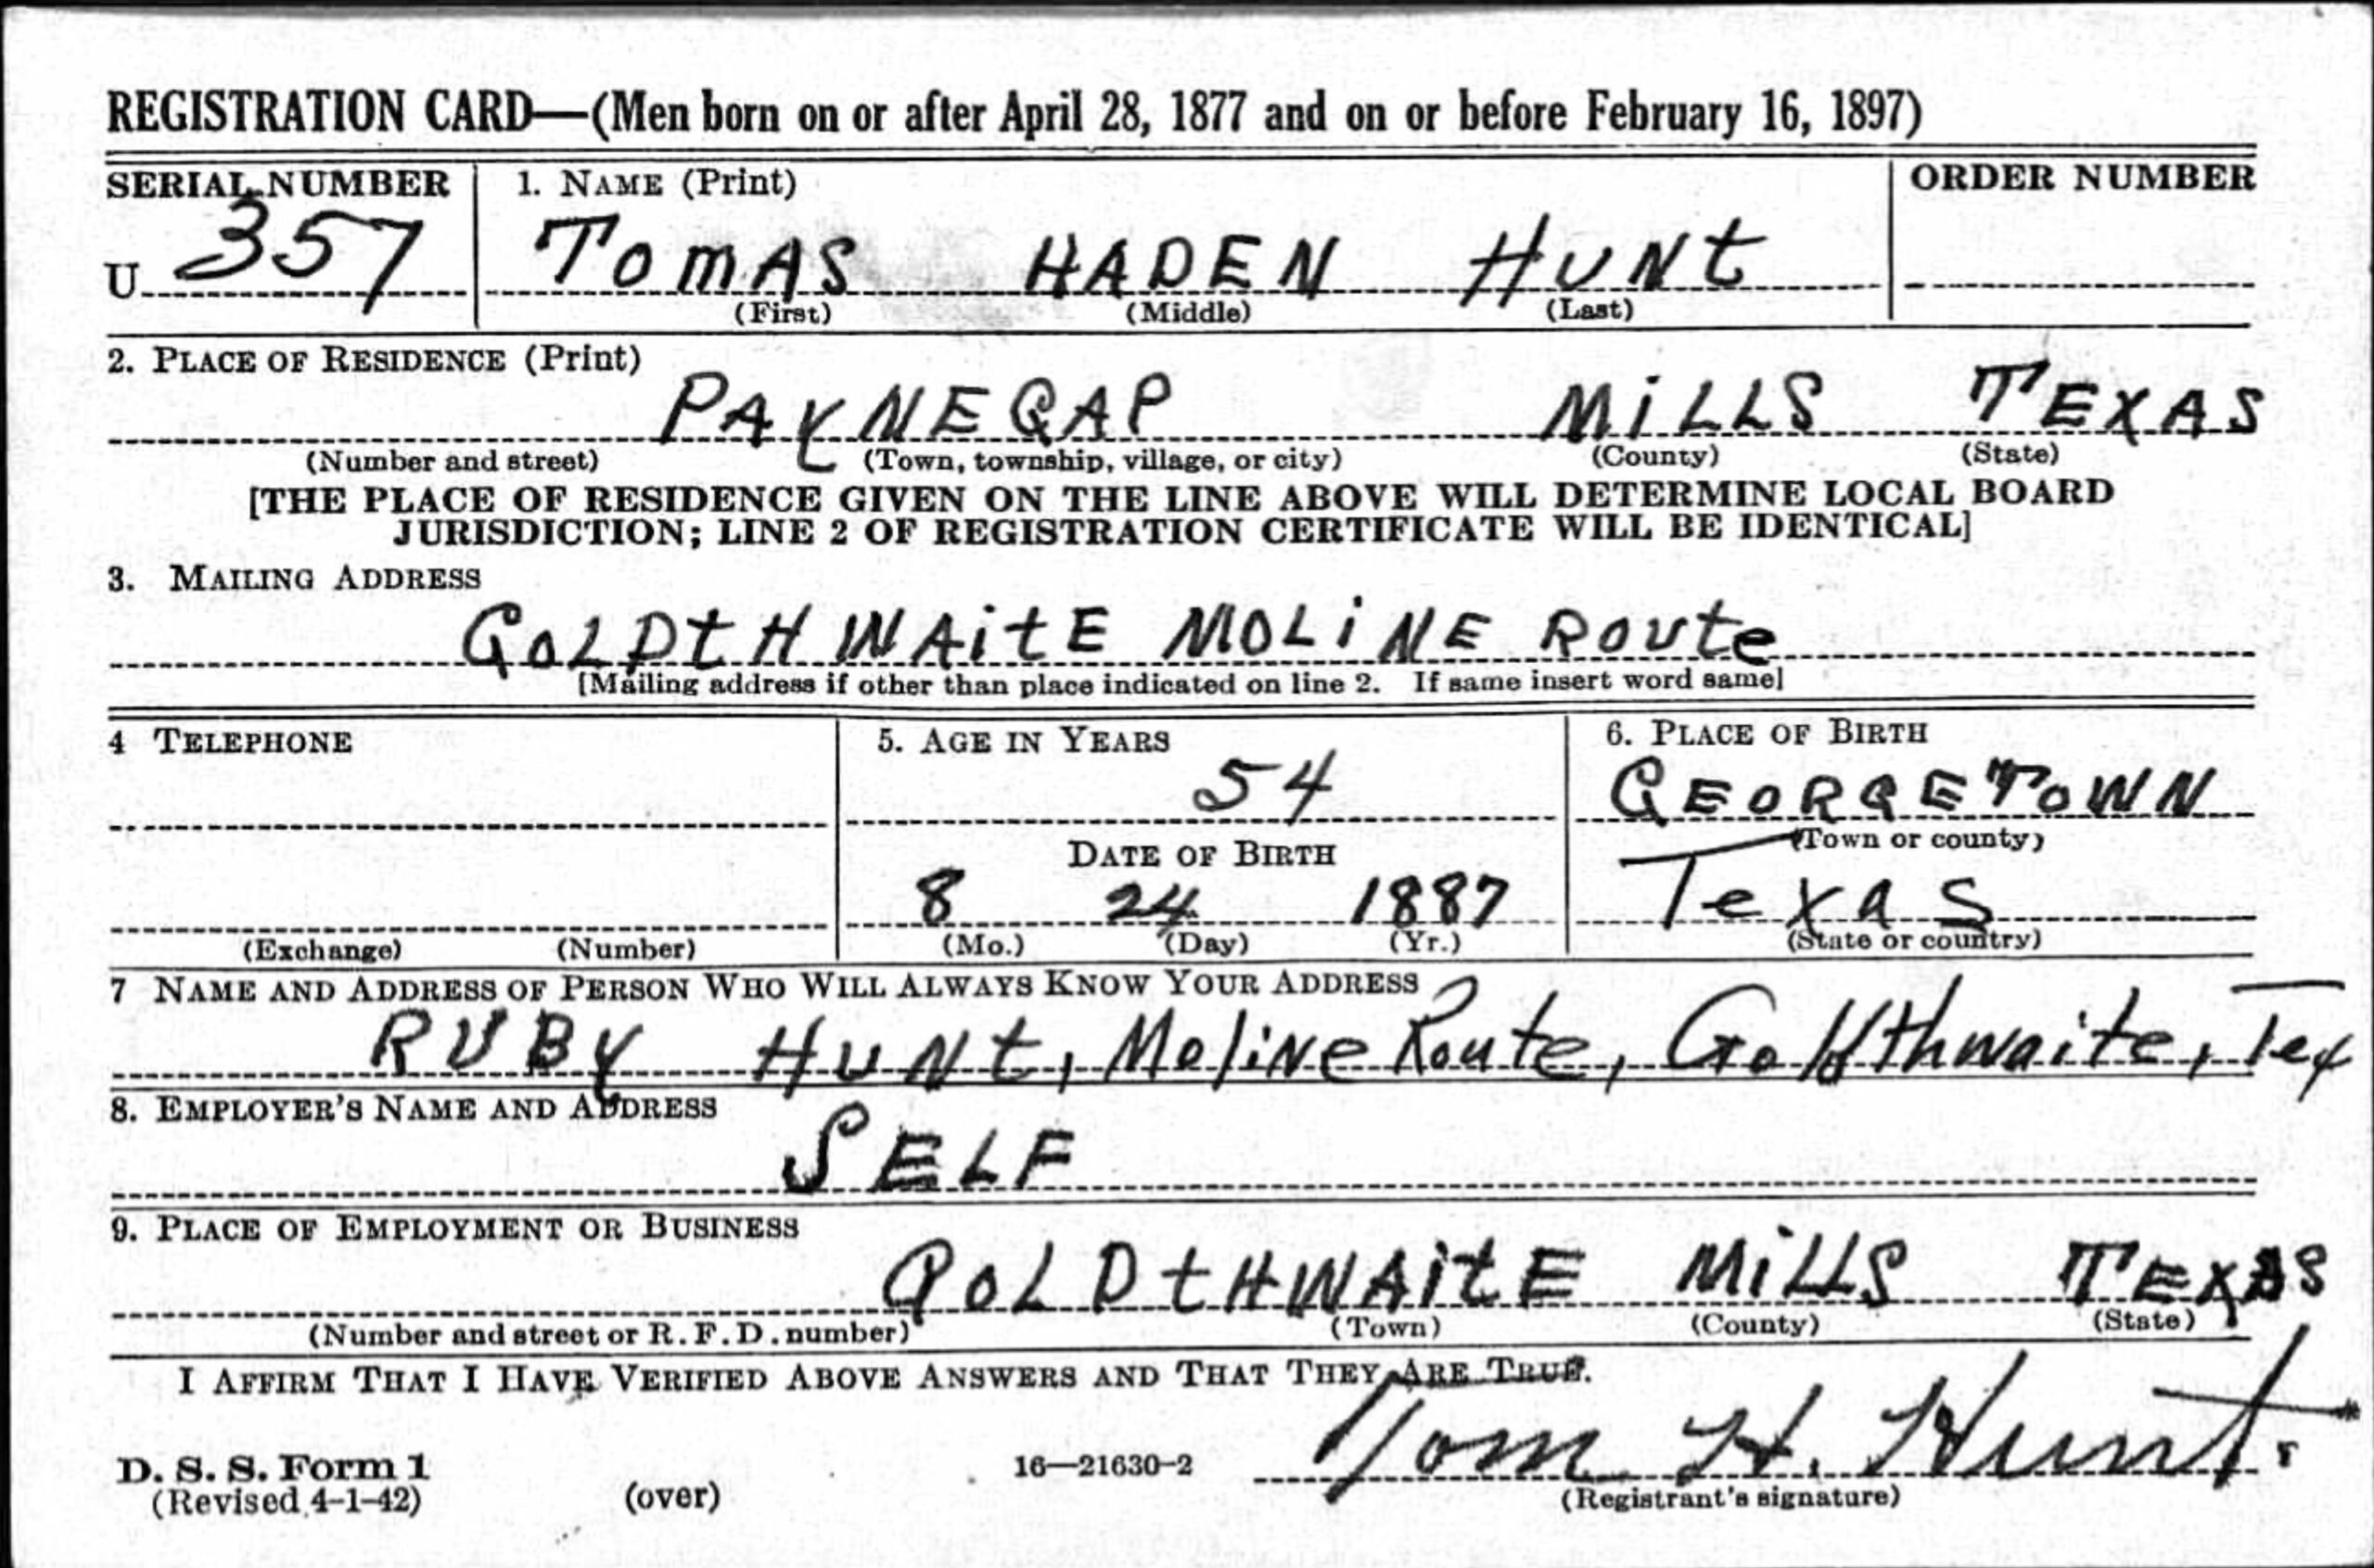 REGISTRATION CARD—(Men born on or after April 28, 1877 and on or before February 16, 1897)
SERIAL NUMBER 1. NAME (Print) ORDER NUMBER
U 357 TOMAS HADEN HUNt
(First) (Middle) (Last)
2. PLACE OF RESIDENCE (Print)
PAYNEGAP MiLLS TEXAS
(Number and street) (Town, township, village, or city) (County) (State)
[THE PLACE OF RESIDENCE GIVEN ON THE LINE ABOVE WILL DETERMINE LOCAL BOARD
JURISDICTION; LINE 2 OF REGISTRATION CERTIFICATE WILL BE IDENTICAL]
3. MAILING ADDRESS
GOLDtHWAitE MOLiNE ROUte
[Mailing address if other than place indicated on line 2. If same insert word same]
4 TELEPHONE 5. AGE IN YEARS 6. PLACE OF BIRTH
54 GEORGETOWN
DATE OF BIRTH (Town or county)
8 24 1887 Texas
(Exchange) (Number) (Mo.) (Day) (Yr.) (State or country)
7 NAME AND ADDRESS OF PERSON WHO WILL ALWAYS KNOW YOUR ADDRESS
RUBY HUNt, Moline Route, Goldthwaite, Tex
8. EMPLOYER'S NAME AND ADDRESS
SELF
9. PLACE OF EMPLOYMENT OR BUSINESS
GOLDtHWAitE MiLLS TEXAS
(Number and street or R. F. D. number) (Town) (County) (State)
I AFFIRM THAT I HAVE VERIFIED ABOVE ANSWERS AND THAT THEY ARE TRUE.
D. S. S. Form 1
(Revised 4-1-42) (over) 16—21630-2 Tom H. Hunt.
(Registrant's signature)